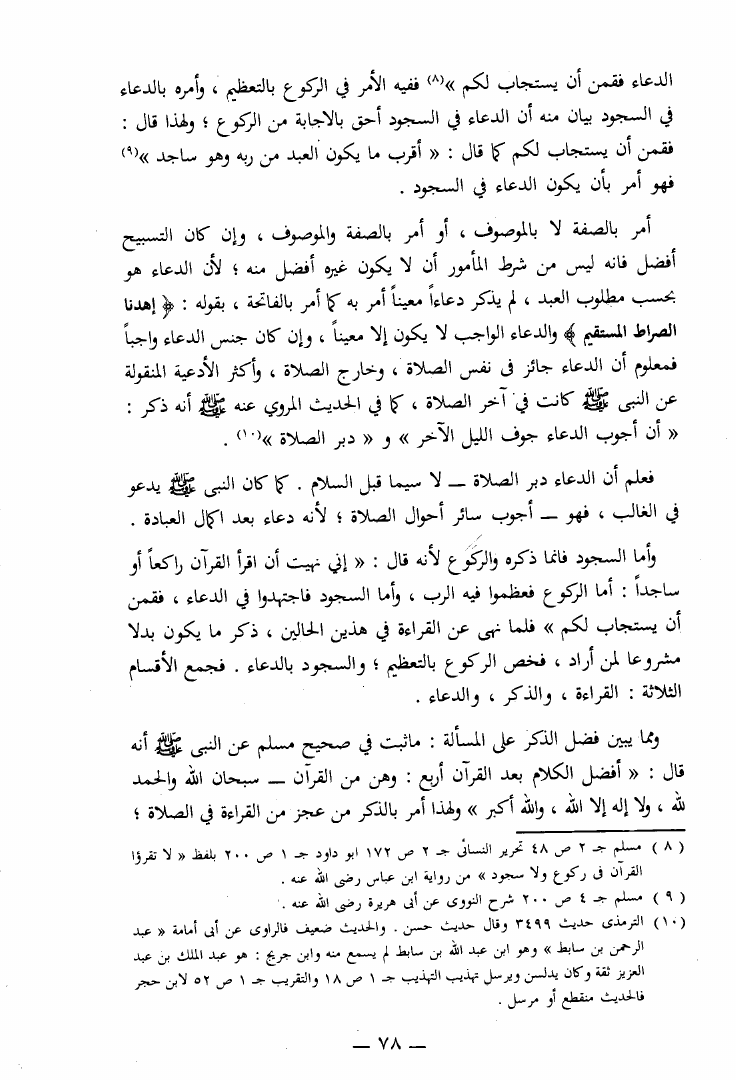 الدعاء فقمن أن يستجاب لكم »(٨) ففيه الأمر في الركوع بالتعظيم ، وأمره بالدعاء
في السجود بيان منه أن الدعاء في السجود أحق بالاجابة من الركوع ؛ ولهذا قال :
فقمن أن يستجاب لكم كما قال : « أقرب ما يكون العبد من ربه وهو ساجد »(٩)
فهو أمر بأن يكون الدعاء في السجود .
أمر بالصفة لا بالموصوف ، أو أمر بالصفة والموصوف ، وإن كان التسبيح
أفضل فانه ليس من شرط المأمور أن لا يكون غيره أفضل منه ؛ لأن الدعاء هو
بحسب مطلوب العبد ، لم يذكر دعاءاً معيناً أمر به كما أمر بالفاتحة ، بقوله : ﴿ إهدنا
الصراط المستقيم ﴾ والدعاء الواجب لا يكون إلا معيناً ، وإن كان جنس الدعاء واجباً
فمعلوم أن الدعاء جائز فى نفس الصلاة ، وخارج الصلاة ، وأكثر الأدعية المنقولة
عن النبى ﷺ كانت في آخر الصلاة ، كما في الحديث المروي عنه ﷺ أنه ذكر :
« أن أجوب الدعاء جوف الليل الآخر » و « دبر الصلاة »(١٠) .
فعلم أن الدعاء دبر الصلاة ــ لا سيما قبل السلام . كما كان النبى ﷺ يدعو
في الغالب ، فهو ــ أجوب سائر أحوال الصلاة ؛ لأنه دعاء بعد اكمال العبادة .
وأما السجود فانما ذكره والركوع لأنه قال : « إني نهيت أن اقرأ القرآن راكعاً أو
ساجداً : أما الركوع فعظموا فيه الرب ، وأما السجود فاجتهدوا في الدعاء ، فقمن
أن يستجاب لكم » فلما نهى عن القراءة في هذين الحالين ، ذكر ما يكون بدلا
مشروعا لمن أراد ، فخص الركوع بالتعظيم ؛ والسجود بالدعاء . فجمع الأقسام
الثلاثة : القراءة ، والذكر ، والدعاء .
ومما يبين فضل الذكر على المسألة : ماثبت في صحيح مسلم عن النبى ﷺ أنه
قال : « أفضل الكلام بعد القرآن أربع : وهن من القرآن ــ سبحان الله والحمد
لله ، ولا إله إلا الله ، والله أكبر » ولهذا أمر بالذكر من عجز من القراءة في الصلاة ؛
( ٨ ) مسلم جـ ٢ ص ٤٨ تحرير النسائى جـ ٢ ص ١٧٢ ابو داود جـ ١ ص ٢٠٠ بلفظ « لا تقرؤا
القرآن فى ركوع ولا سجود » من رواية ابن عباس رضى الله عنه .
( ٩ ) مسلم جـ ٤ ص ٢٠٠ شرح النووى عن أبى هريرة رضى الله عنه .
(١٠) الترمذى حديث ٣٤٩٩ وقال حديث حسن . والحديث ضعيف فالراوى عن أبى أمامة « عبد
الرحمن بن سابط » وهو ابن عبد الله بن سابط لم يسمع منه وابن جريج : هو عبد الملك بن عبد
العزيز ثقة وكان يدلسن ويرسل تهذيب التهذيب جـ ١ ص ١٨ والتقريب جـ ١ ص ٥٢ لابن حجر
فالحديث منقطع أو مرسل .
— ٧٨ —